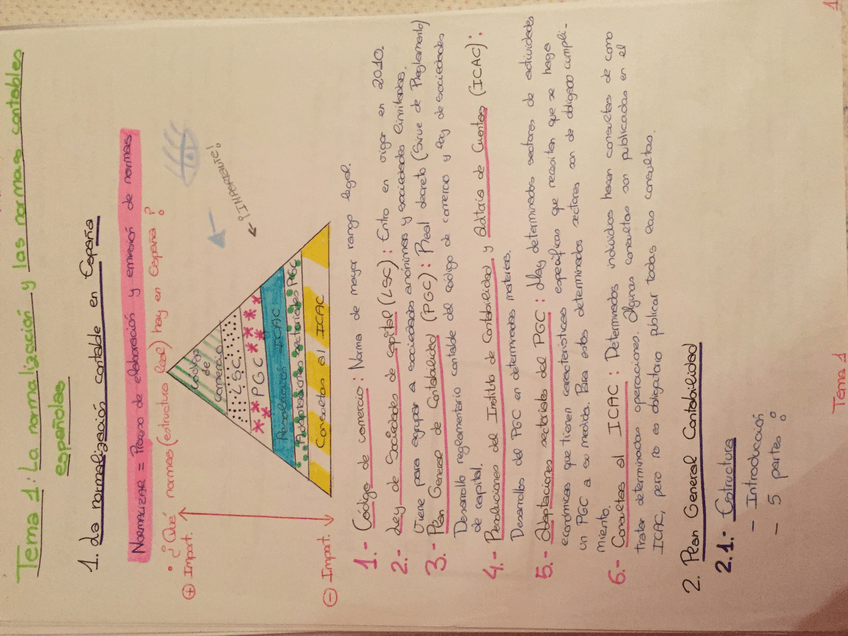 Tema 1: La normalización y las normas contables
españolas
1. La normalización contable en España
Normalizar = Proceso de elaboración y emisión de normas
• ¿Qué normas (estructura legal) hay en España?
⊕ Import.
¡IMPORTANTE!
Código
de
comercio
LSC
PGC
Resoluciones ICAC
Adaptaciones sectoriales PGC
Consultas al ICAC
⊖ Import.
1.- Código de comercio: Norma de mayor rango legal.
2.- Ley de Sociedades de capital (LSC): Entró en vigor en 2010.
Viene para agrupar a sociedades anónimas y sociedades limitadas.
3.- Plan General de Contabilidad (PGC): Real decreto (Sirve de Reglamento)
Desarrollo reglamentario contable del código de comercio y ley de sociedades
de capital.
4.- Resoluciones del Instituto de Contabilidad y Auditoría de Cuentas (ICAC):
Desarrollos del PGC en determinadas materias.
5.- Adaptaciones sectoriales del PGC: Hay determinados sectores de actividades
económicas que tienen características específicas que necesitan que se haga
un PGC a su medida. Para estos determinados sectores son de obligado cumpli-
miento.
6.- Consultas al ICAC: Determinados individuos hacen consultas de como
tratar determinadas operaciones. Algunas consultas son publicadas en el
ICAC, pero no es obligatorio publicar todas esas consultas.
2. Plan General Contabilidad
2.1.- Estructura
- Introducción
- 5 partes:
Tema 1
1